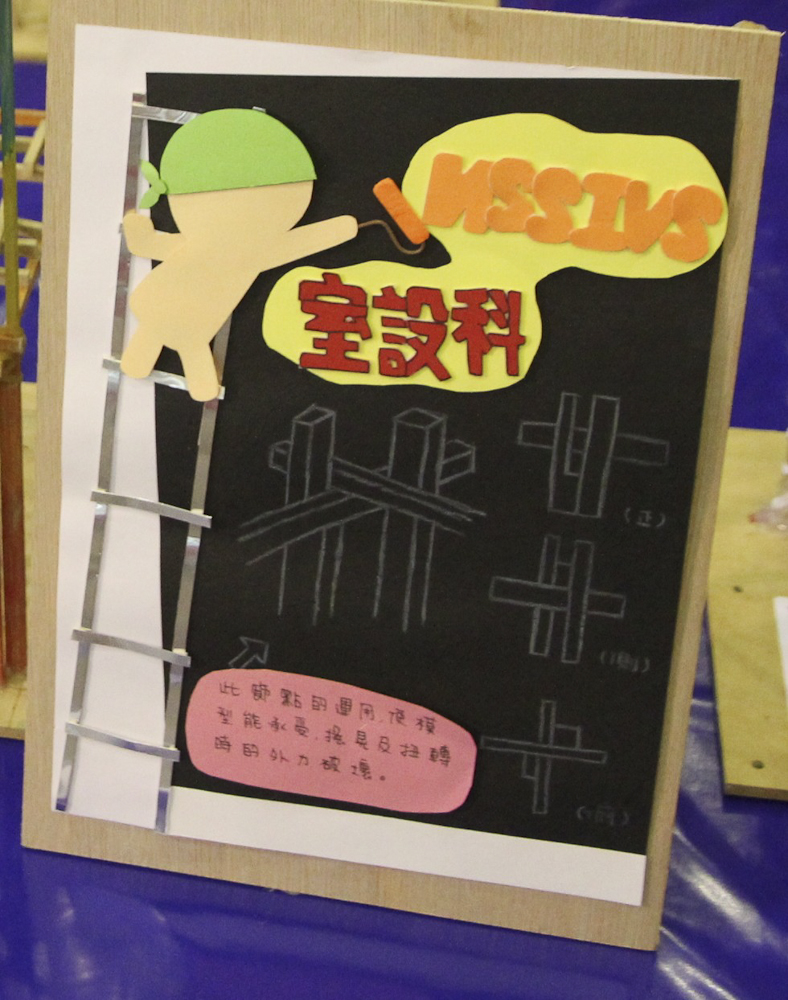 NSSIVS
室設科
(正)
(側)
此節點的運用,使模
型能承受,搖晃及扭轉
時的外力破壞。